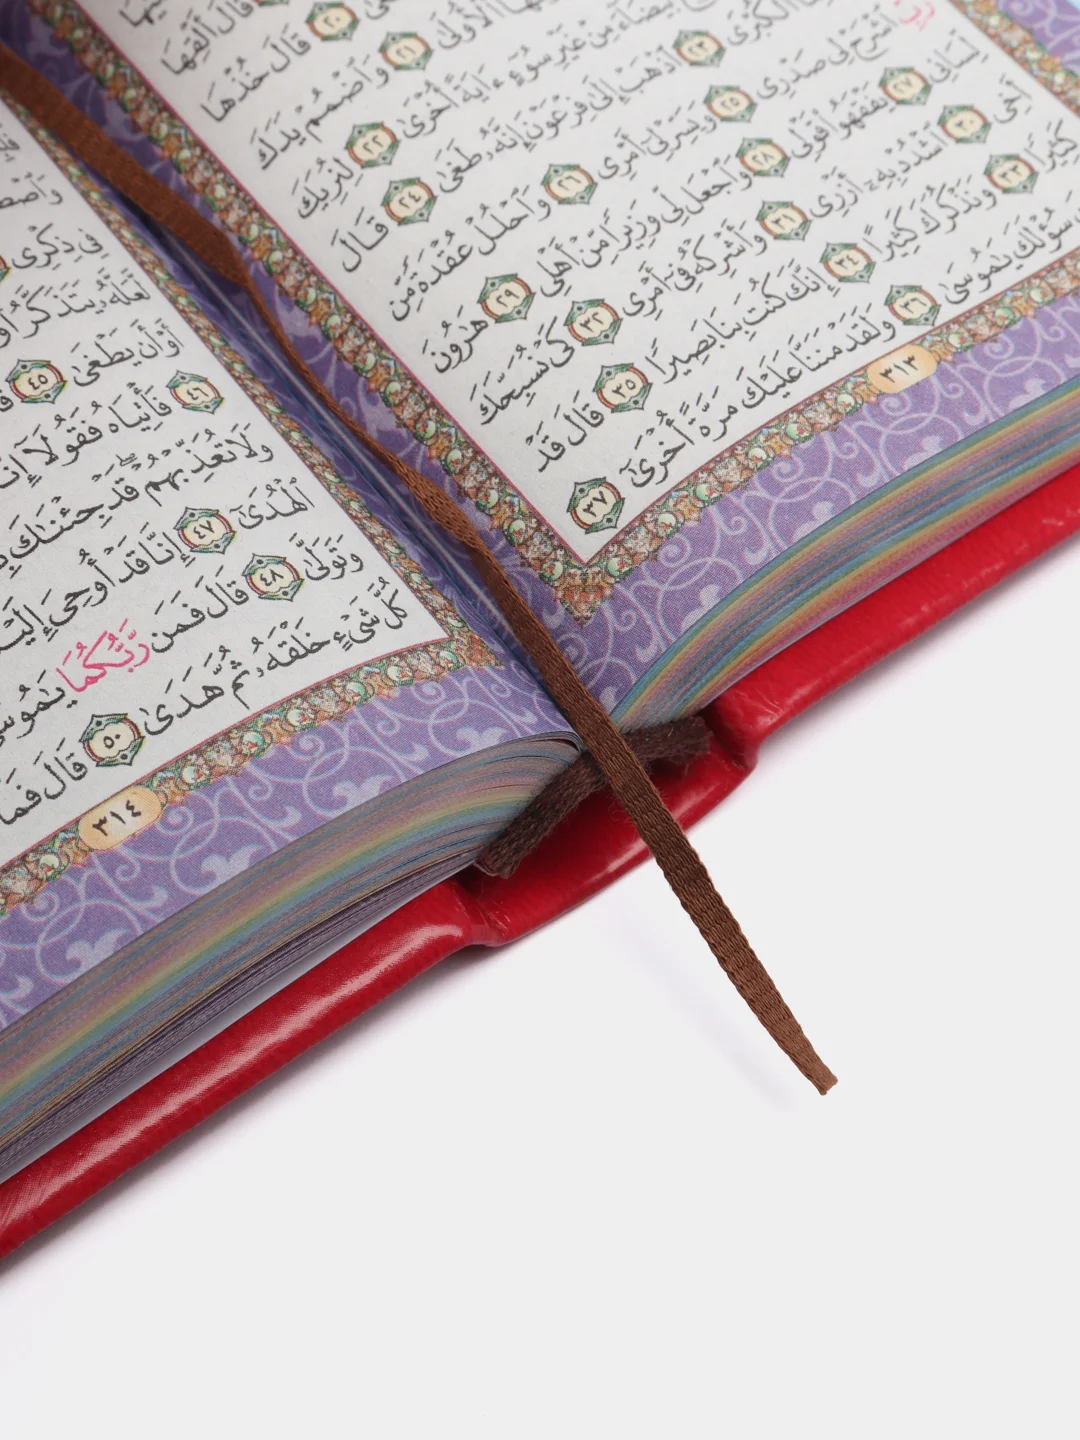 قَالَ أَلْقِهَا
٢٠ قَالَ خُذْهَا
ٱلْأُولَىٰ ٢١ وَٱضْمُمْ يَدَكَ
بَيْضَآءَ مِنْ غَيْرِ سُوٓءٍ ءَايَةً أُخْرَىٰ ٢٢ لِنُرِيَكَ
ٱلْكُبْرَى ٢٣ ٱذْهَبْ إِلَىٰ فِرْعَوْنَ إِنَّهُۥ طَغَىٰ ٢٤ قَالَ
رَبِّ ٱشْرَحْ لِى صَدْرِى ٢٥ وَيَسِّرْ لِىٓ أَمْرِى ٢٦ وَٱحْلُلْ عُقْدَةً مِّن
لِّسَانِى ٢٧ يَفْقَهُوا۟ قَوْلِى ٢٨ وَٱجْعَل لِّى وَزِيرًا مِّنْ أَهْلِى ٢٩ هَٰرُونَ
أَخِى ٣٠ ٱشْدُدْ بِهِۦٓ أَزْرِى ٣١ وَأَشْرِكْهُ فِىٓ أَمْرِى ٣٢ كَىْ نُسَبِّحَكَ
كَثِيرًا ٣٣ وَنَذْكُرَكَ كَثِيرًا ٣٤ إِنَّكَ كُنتَ بِنَا بَصِيرًا ٣٥ قَالَ قَدْ
سُؤْلَكَ يَٰمُوسَىٰ ٣٦ وَلَقَدْ مَنَنَّا عَلَيْكَ مَرَّةً أُخْرَىٰٓ ٣٧
٣١٣
فِى ذِكْرِى
لَّعَلَّهُۥ يَتَذَكَّرُ أَوْ
أَوْ أَن يَطْغَىٰ ٤٥
٤٦ فَأْتِيَاهُ فَقُولَآ إِنَّا
وَلَا تُعَذِّبْهُمْ قَدْ جِئْنَٰكَ
ٱلْهُدَىٰٓ ٤٧ إِنَّا قَدْ أُوحِىَ
وَتَوَلَّىٰ ٤٨ قَالَ فَمَن رَّبُّكُمَا يَٰمُوسَىٰ
كُلَّ شَىْءٍ خَلْقَهُۥ ثُمَّ هَدَىٰ ٥٠ قَالَ فَمَا
٣١٤